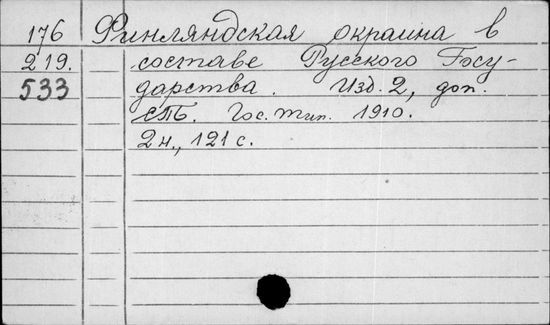 176 Финляндская окраина в
219. составе Русского Госу-
533 дарства. Изд. 2, доп.
СПб. Гос. тип. 1910.
2 н., 121 с.